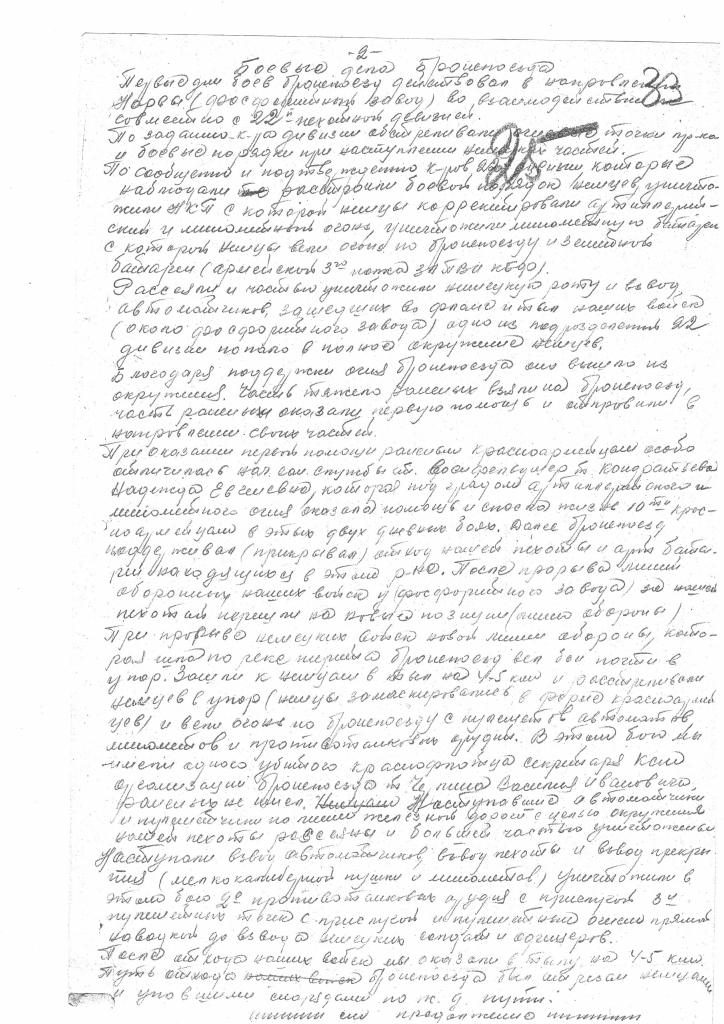 -2-
Боевые дела бронепоезда
32
Первые дни боев бронепоезд действовал в направлении
Нарвы (фосфоритный завод) во взаимодействии
совместно с 22й пехотной дивизией.
25
По заданию к-ра дивизии обстреливали огневые точки пр-ка
и боевые порядки при наступлении немецкой частей.
По сообщению и подтверждению к-ров 22 дивизии которые
наблюдали расстроили боевой порядок немцев, уничто-
жили НКП с которой немцы корректировали артиллерий-
ский и минометный огонь, уничтожили минометную батарею
с которой немцы вели огонь по бронепоезду и зенитной
батареи (армейской 3го полка ЗАП ВМ КБФ).
Рассеяли и частью уничтожили немецкую роту и взвод
автоматчиков, зашедших во фланг и тыл наших войск
(около фосфоритного завода) одно из подразделений 22
дивизии попало в полное окружение немцев.
Благодаря поддержки огня бронепоезда оно вышло из
окружения. Часть тяжело раненых взяли на бронепоезд,
часть раненых оказали первую помощь и отправили в
направлении своих частей.
При оказании первой помощи раненым красноармейцам особо
отличилась нач. сан. службы ст. военфельдшер т. Кондратьева
Надежда Евгеневна, которая под градом артиллерийского и
минометного огня оказала помощь и спасла жизнь 10ти крас-
ноармейцам в этих двух дневных боях. Далее бронепоезд
поддерживал (прикрывал) отход нашей пехоты и арт. бата-
реи находящиюся в этом р-не. После прорыва линии
обороны наших войск у (фосфоритного завода) за нашей
пехотой перешли на новые позиции (линии обороны)
При прорыве немецких войск новой линии обороны, кото-
рая шла по реке бронепоезд вел бои почти в
упор. Зашли к немцам в тыл на 4-5 км и расстреливали
немцев в упор (немцы замаскировались в форме красноармей
цев) и вели огонь по бронепоезду с пулеметов автоматов
минометов и противотанковых орудий. В этом бою мы
имели одного убитого краснофлотца секретаря КСМ
организации бронепоезда т. Василия Ивановича,
раненых не имел. Наступавшие автоматчики
и пулеметчики по линии железной дороги с целью окружения
нашей пехоты рассеяны и большей частью уничтожены
Наступали взвод автоматчиков, взвод пехоты и взвод прекры-
тия (мелкокалиберной пушки и минометов) уничтожили в
этом бою 2а противотанковых орудия с прислугой 3и
пулеметных точек с прислугой и пулеметным огнем прямой
наводкой до взвода немецких солдат и офицеров.
После отхода наших войск мы оказали в тылу на 4-5 км.
Путь отхода наших войск бронепоезда был отрезан немцами
и упавшими снарядами по ж.д. пути.
см продолжение